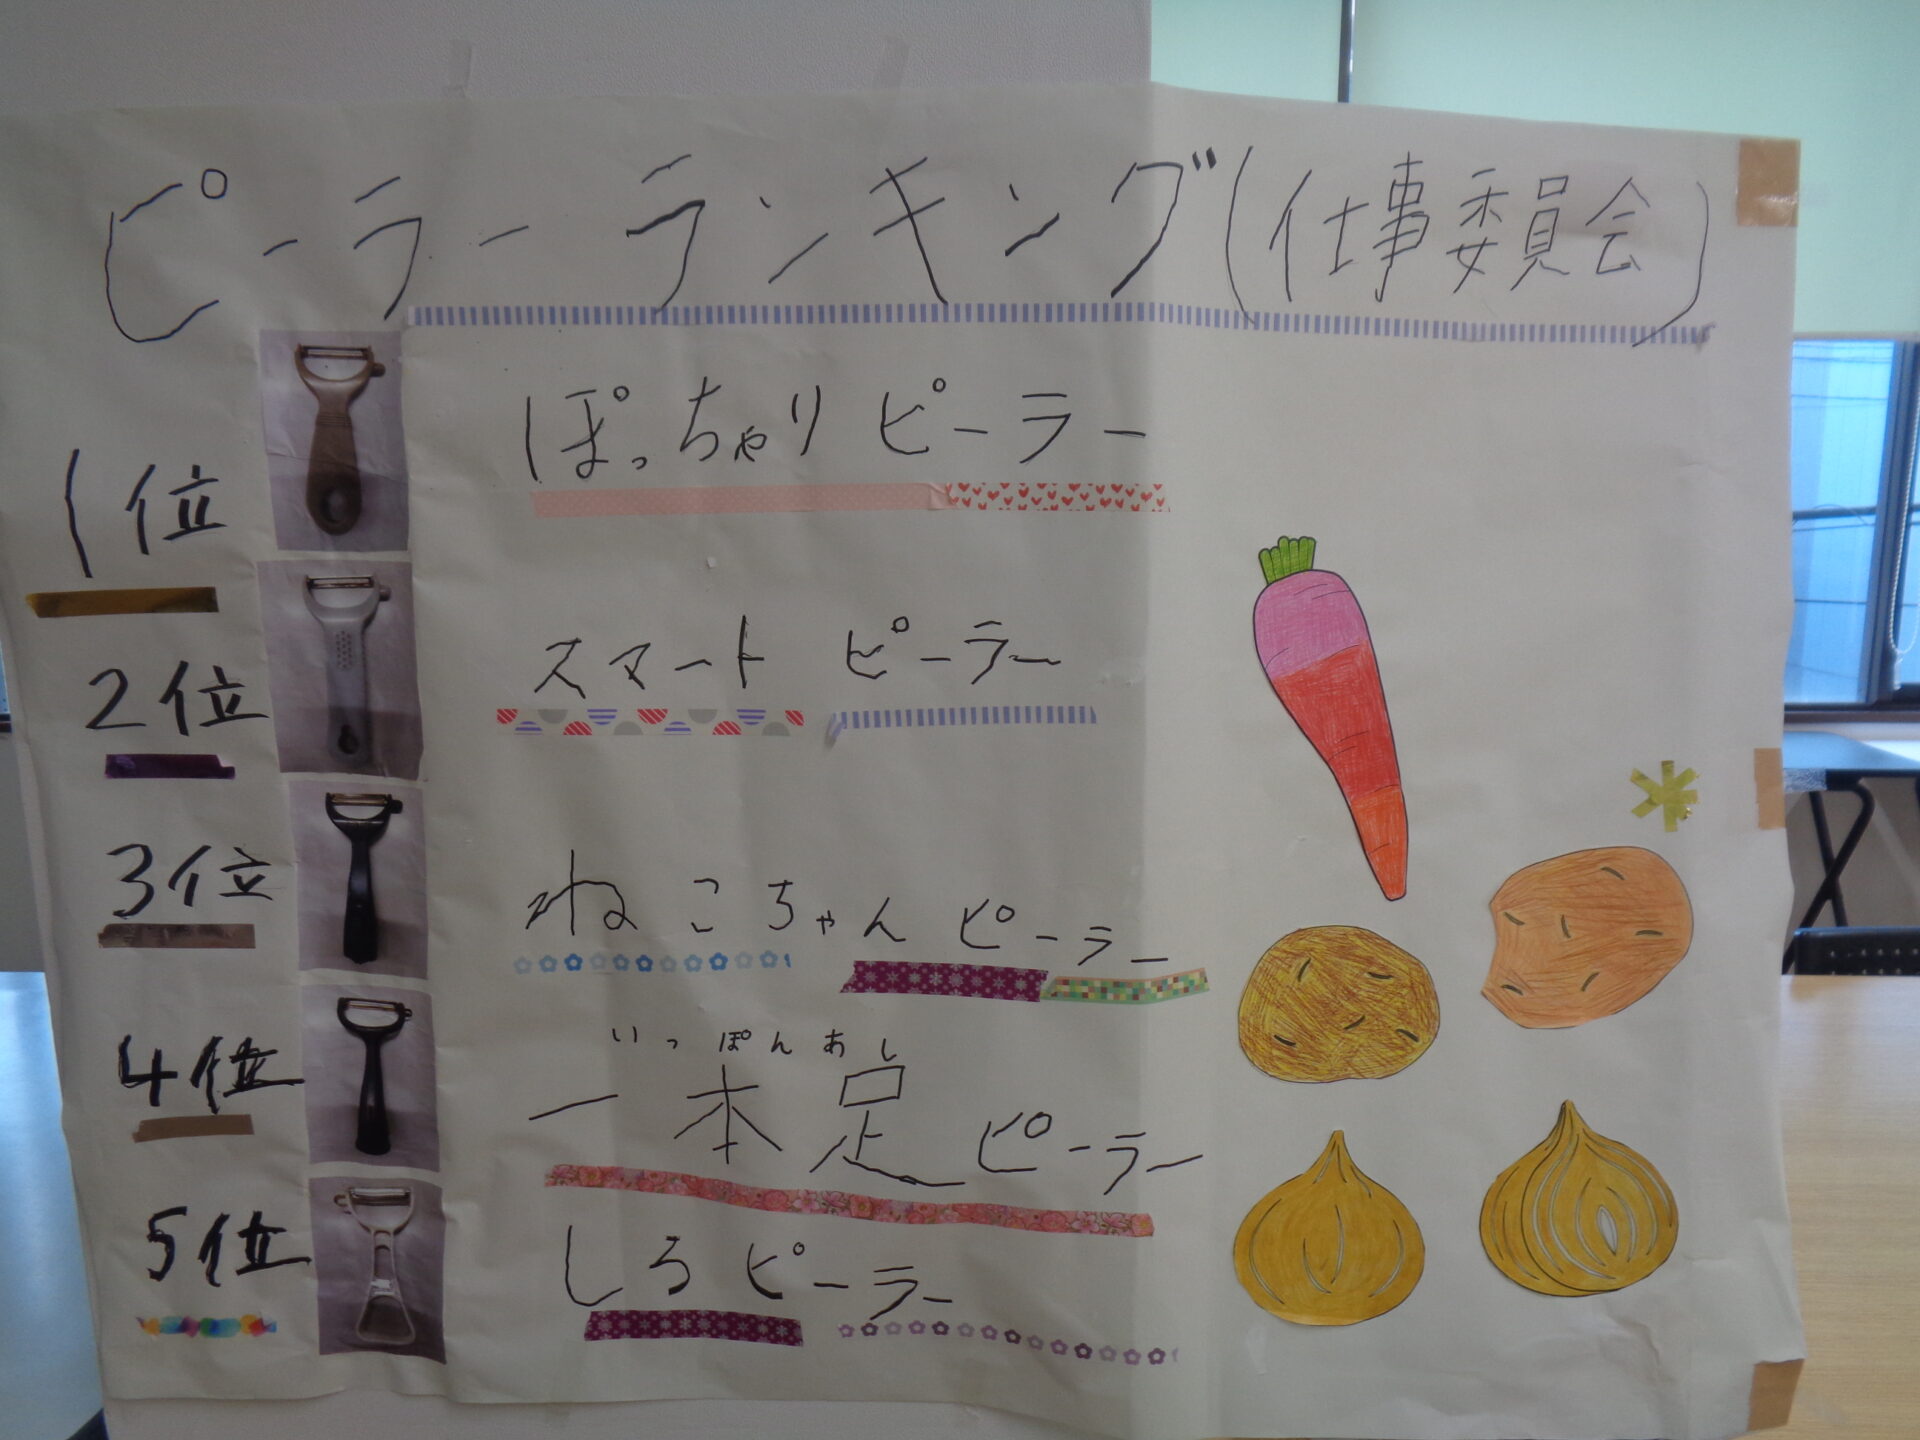 ピーラーランキング(仕事委員会)
1位 ぽっちゃりピーラー
2位 スマート ピーラー
3位 ねこちゃんピーラー
いっぽんあし
4位 一本足ピーラー
5位 しろピーラー